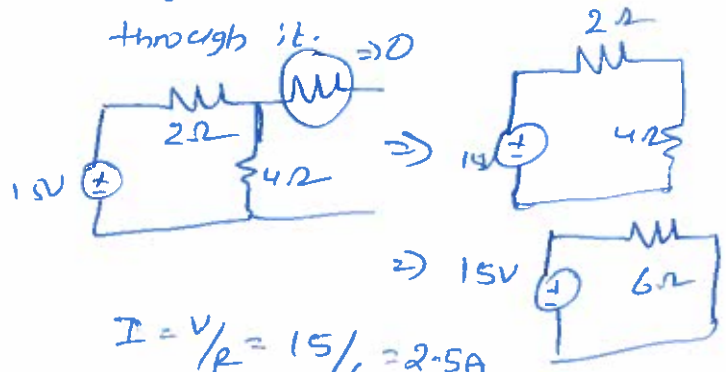 through it.
=>0
2Ω
4Ω
15V
=>
2Ω
4Ω
15
=> 15V
6Ω
I = V/R = 15/6 = 2.5A